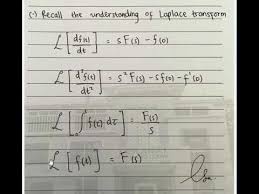 (-) Recall the understanding of Laplace transform
L [ df(t) / dt ] = s F(s) - f(0)
L [ d²f(t) / dt² ] = s² F(s) - s f(0) - f'(0)
L [ ∫ f(t) . dτ ] = F(s) / s
L [ f(t) ] = F(s)